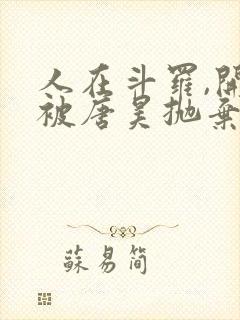 人在斗罗,開
被唐昊抛棄
蘇易简